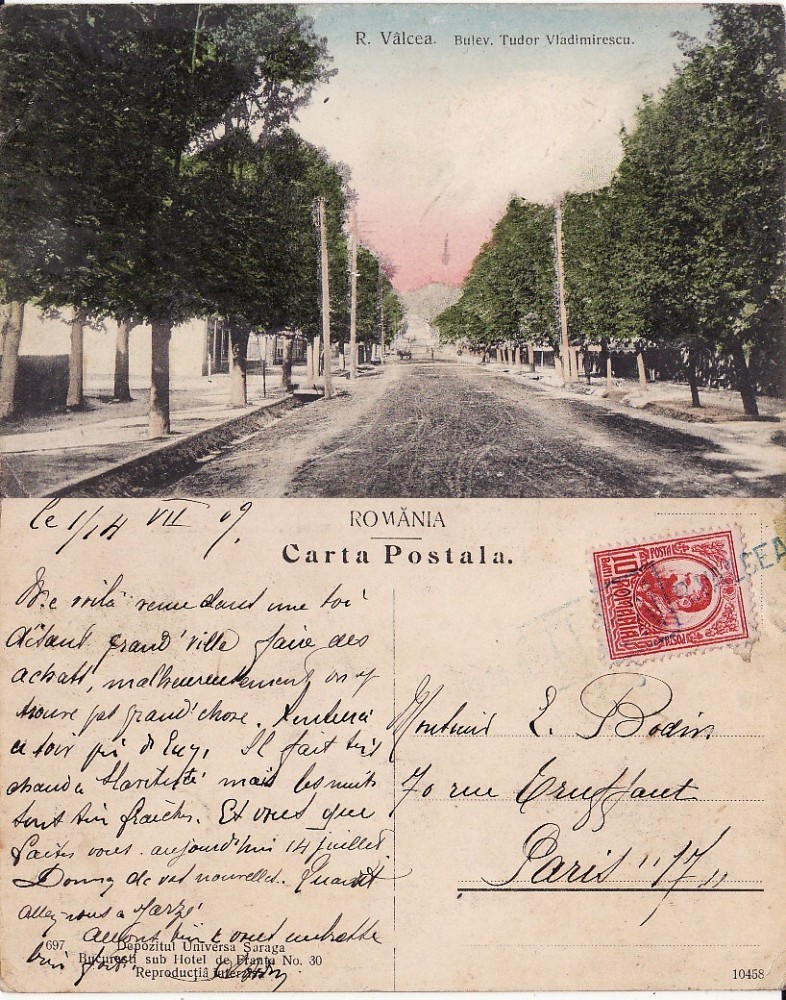 R. Vâlcea. Bulev. Tudor Vladimirescu.
le 1/14 VII 09.
ROMĂNIA
Carta Postala.
POSTA
10
ROMANIA
VÂLCEA
Me voilà venue dans une
grand' ville faire des
achats, malheureusement on y
trouve pas grand' chose.
ce soir Il fait très
chaud mais les nuits
sont très fraîches. Et vous que
faites vous aujourd'hui 14 juillet
Donnez de vos nouvelles. Quand
allez-vous a
vous embrasse
bien fort.
Monsieur E. Bodin
70 rue Truffaut
Paris "17"
697 Depozitul Universa Șaraga
București sub Hotel de Franța No. 30
Reproducția interzisă
10458